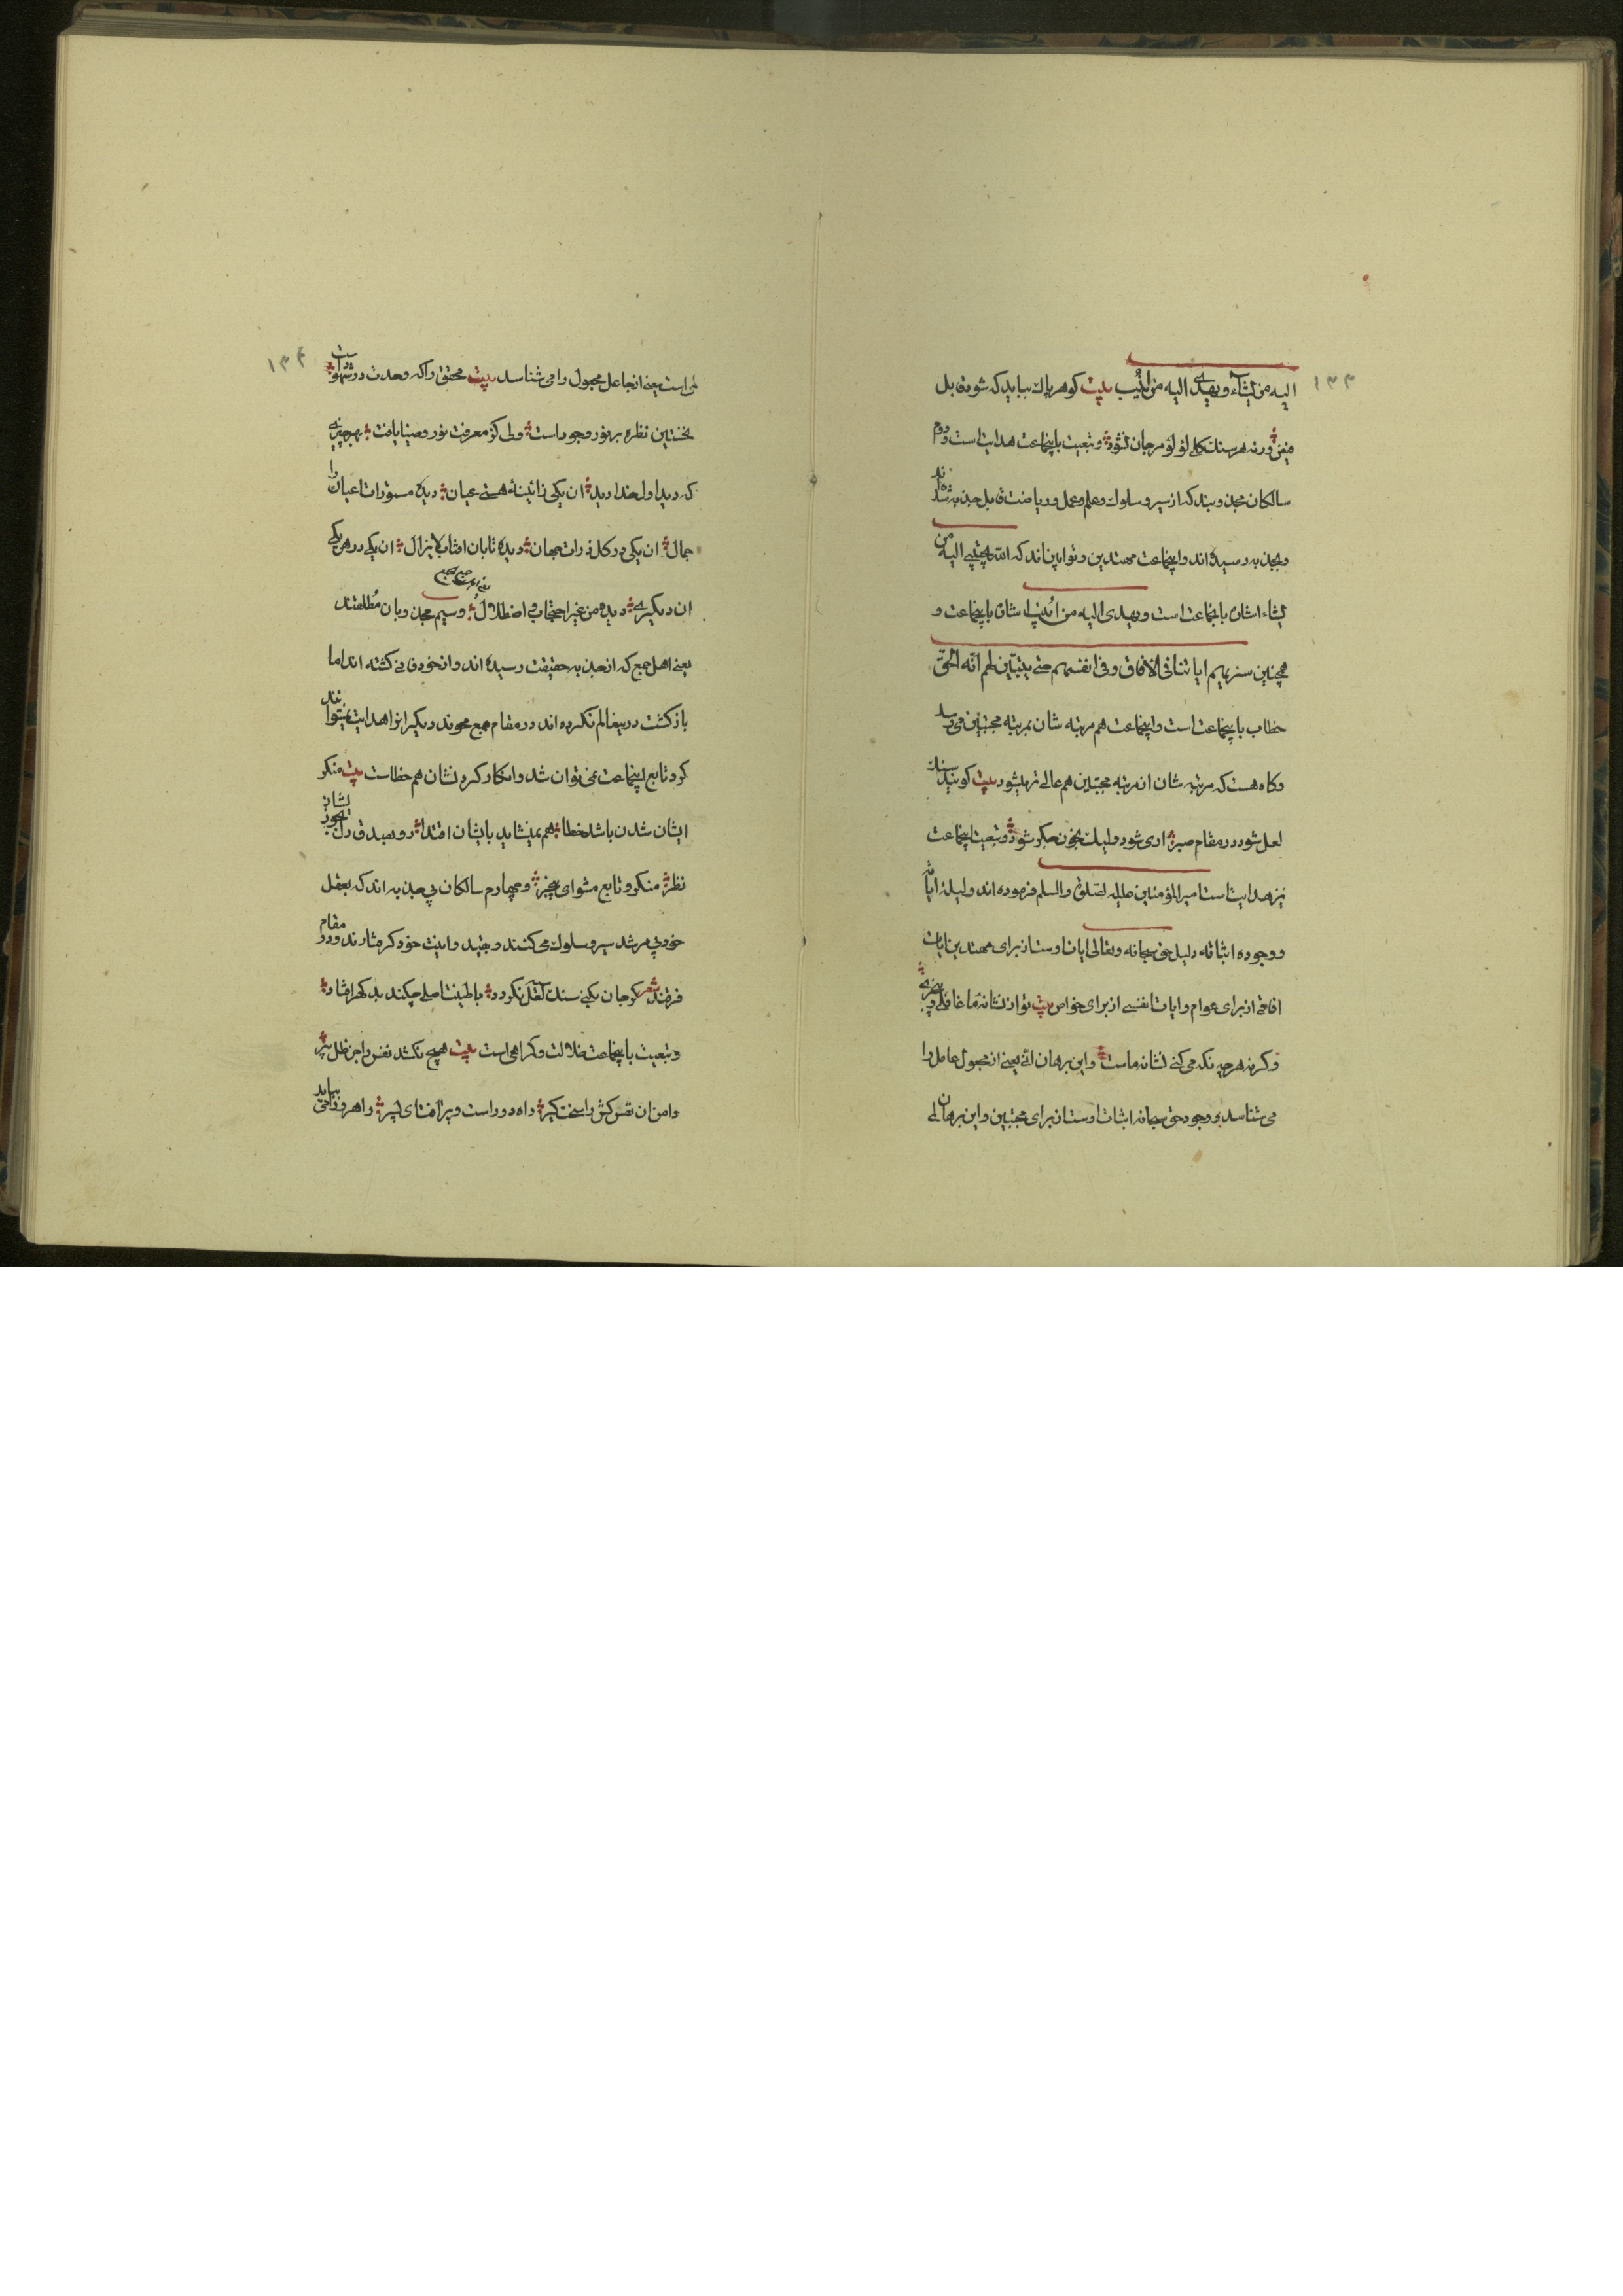 ۱۳۳
الیه من یشآء و یهدی الیه من ینیب بیت کوهر پاک بباید که شود قابل
فیض ورنه هر سنک کلی لؤلؤ مرجان نشود و تبعیت باینجماعت هدایت است و دوم
سالکان مجذوبند که از سیر و سلوک و علم و عمل و ریاضت قابل جذبه شده اند
و بجذبه رسیده اند و اینجماعت مهتدین و توابین اند که الله یجتبی الیه من
یشاء اشان بانجماعت است و یهدی الیه من ینیب اشان باینجماعت و
همچنین سنریهم ایاتنا فی الافاق و فی انفسهم حتی یتبین لهم انه الحق
خطاب باینجماعت است و اینجماعت هم مرتبه شان بمرتبه مجتبین می رسد
و کاه هست که مرتبه شان از مرتبه مجتبین هم عالی تر میشود بیت کویند سنک
لعل شود در مقام صبر اری شود ولیک بخون جکر شود و تبعیت اینجماعت
نیز هدایت است امیر المؤمنین علیه الصلوة والسلم فرموده اند دلیله ایاته
و وجوده اثباته دلیل حق سبحانه و تعالی ایات اوست از برای مهتدین ایات
افاقی از برای عوام و ایات انفسی از برای خواص بیت تو از نشانهٔ ما غافلی و بیخبری
و کرنه هر چه نکه می کنی نشانه ماست و این برهان انی یعنی از مجعول جاعل را
می شناسد و وجود حق سبحانه اثبات اوست از برای مجتبین و این برهان لی
۱۳۴
لمی است یعنی از جاعل مجعول را می شناسد بیت محقق را که وحدت در شهود است
نخستین نظره بر نور وجود است دلی کز معرفت نور و صفا یافت بهر چیزی
که دید اول خدا دید ان یکی زائینهٔ هستی عیان دیده مستورات اعیان را
جمال ان یکی در کل ذرات جهان دیده تابان افتاب لایزال ان یکی در هر یکی
ان دیکری دیده من غیر احتجاب و اضطلال و سیم مجذوبان مطلقند
یعنی اهل جمع که از جذبه بحقیقت رسیده اند و از خود فانی کشته اند اما
باز کشت در بنعالم نکرده اند در مقام جمع محوند دیکرانرا هدایت نمیتوانند
کرد تابع اینجماعت نمی توان شد و انکار کردنشان هم خطاست بیت منکر
ایشان شدن باشد خطا هم نمیشاید بایشان اقتدا رو بصدق دل بجوز ایشان
نظر منکر و تابع مشو ای بیخبر و چهارم سالکان بی جذبه اند که بعقل
خود بی مرشد سیر و سلوک می کنند و بقید و انیت خود کرفتارند و در مقام
فرقند شعر کر جان بکنی سنک لعل نکردد با طینت اصلی چکند بد کهر افتاد
و تبعیت باینجماعت ضلالت و کمراهی است بیت هیچ نکشد نفس را جز ظل پیر
دامن ان نفس کش را سخت کیر راه دور است و پر افت ای پسر راهرو را می بباید